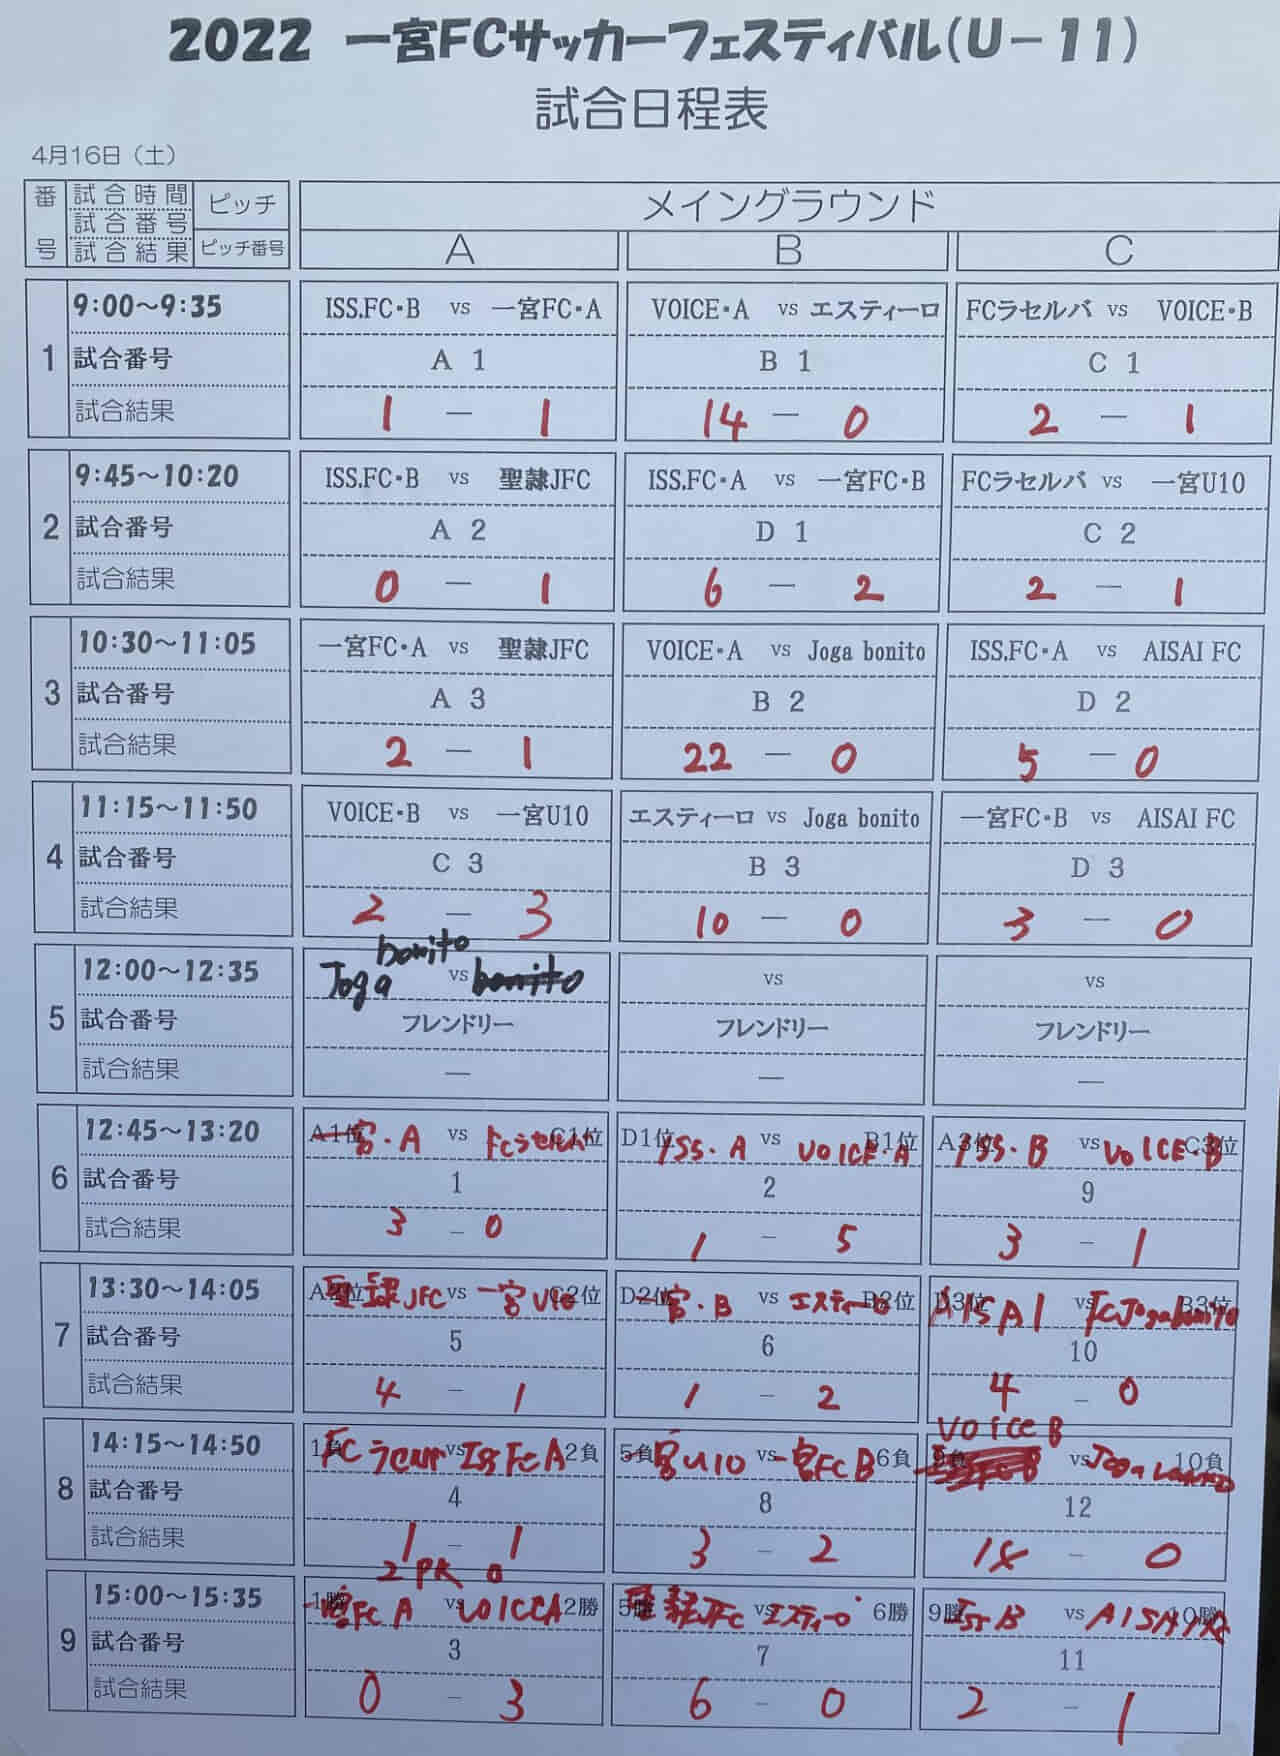 2022 一宮FCサッカーフェスティバル(U－11)
試合日程表
4月16日（土）
番号 試合時間 試合番号 試合結果 ピッチ ピッチ番号 メイングラウンド
A B C
1 9:00～9:35 ISS.FC・B vs 一宮FC・A VOICE・A vs エスティーロ FCラセルバ vs VOICE・B
試合番号 A 1 B 1 C 1
試合結果 1 － 1 14 － 0 2 － 1
2 9:45～10:20 ISS.FC・B vs 聖隷JFC ISS.FC・A vs 一宮FC・B FCラセルバ vs 一宮U10
試合番号 A 2 D 1 C 2
試合結果 0 － 1 6 － 2 2 － 1
3 10:30～11:05 一宮FC・A vs 聖隷JFC VOICE・A vs Joga bonito ISS.FC・A vs AISAI FC
試合番号 A 3 B 2 D 2
試合結果 2 － 1 22 － 0 5 － 0
4 11:15～11:50 VOICE・B vs 一宮U10 エスティーロ vs Joga bonito 一宮FC・B vs AISAI FC
試合番号 C 3 B 3 D 3
試合結果 2 － 3 10 － 0 3 － 0
bonito
5 12:00～12:35 Joga vs bonito vs vs
試合番号 フレンドリー フレンドリー フレンドリー
試合結果 － － －
6 12:45～13:20 A1位 一宮・A vs FCラセルバ C1位 D1位 ISS・A vs VOICE・A B1位 A3位 ISS・B vs VOICE・B C3位
試合番号 1 2 9
試合結果 3 － 0 1 － 5 3 － 1
7 13:30～14:05 A2位 聖隷JFC vs 一宮U10 C2位 D2位 一宮・B vs エスティーロ B2位 D3位 AISAI vs FCJogabonito B3位
試合番号 5 6 10
試合結果 4 － 1 1 － 2 4 － 0
VOICE B
8 14:15～14:50 1負 FCラセルバ vs ISS FC A 2負 5負 一宮U10 vs 一宮FC B 6負 9負 vs Joga bonito 10負
試合番号 4 8 12
試合結果 1 － 1 3 － 2 － 0
2 PK 0
9 15:00～15:35 1勝 一宮FC A vs VOICE A 2勝 5勝 聖隷JFC vs エスティーロ 6勝 9勝 ISS B vs AISAI FC 10勝
試合番号 3 7 11
試合結果 0 － 3 6 － 0 2 － 1